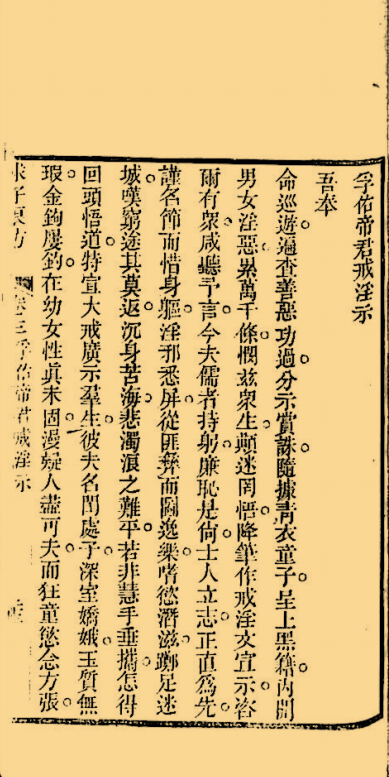 孚佑帝君戒淫示
吾奉
命巡遊遍查善惡功過分示賞誅隨據靑衣童子呈上黑籍內開
男女淫惡累萬千條憫茲衆生顚迷罔悟降筆作戒淫文宣示咨
爾有衆咸聽予言今夫儒者持躬廉恥是尙士人立志正直爲先
謹名節而惜身軀淫邪悉屏從匪彝而圖逸樂嗜慾潛滋躑足迷
城嘆窮途其莫返沉身苦海悲濁浪之難平若非慧手垂攜怎得
回頭悟道特宜大戒廣示羣生彼夫名閨處子深室嬌娥玉質無
瑕金鉤屢釣在幼女性眞未固漫疑人盡可夫而狂童慾念方張
卷三孚佑帝君戒淫示